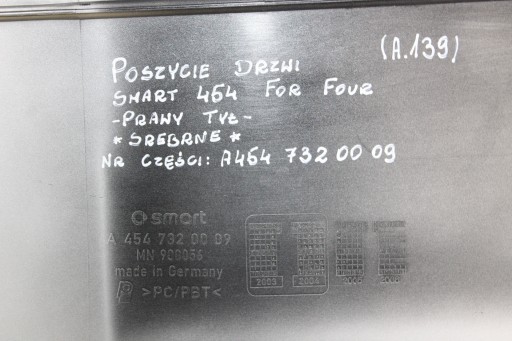 (A.139)
POSZYCIE DRZWI
SMART 454 FOR FOUR
-PRAWY TYŁ-
* SREBRNE *
NR CZĘŚCI: A454 732 00 09
smart
A 454 732 00 09
MN 900056
made in Germany
>PC/PBT<
2003 2004